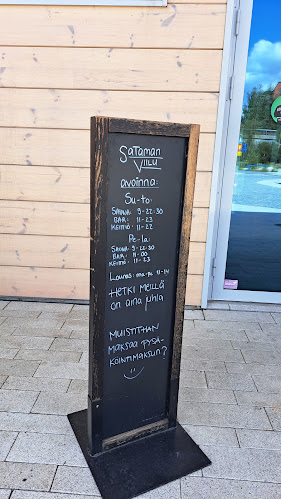 SaTaman
VIILU
avoinna:
Su-to:
SAUNA: 9-22.30
BAR: 11-23
KEITTIÖ: 11-22
Pe-la:
SAUNA: 9-22.30
BAR: 11-00
KEITTIÖ: 11-23
Lounas: ma-pe 11-14
HETKI MEILLÄ
ON AINA JUHLA
MUISTITHAN
MAKSAA PYSÄ-
KÖINTIMAKSUN?